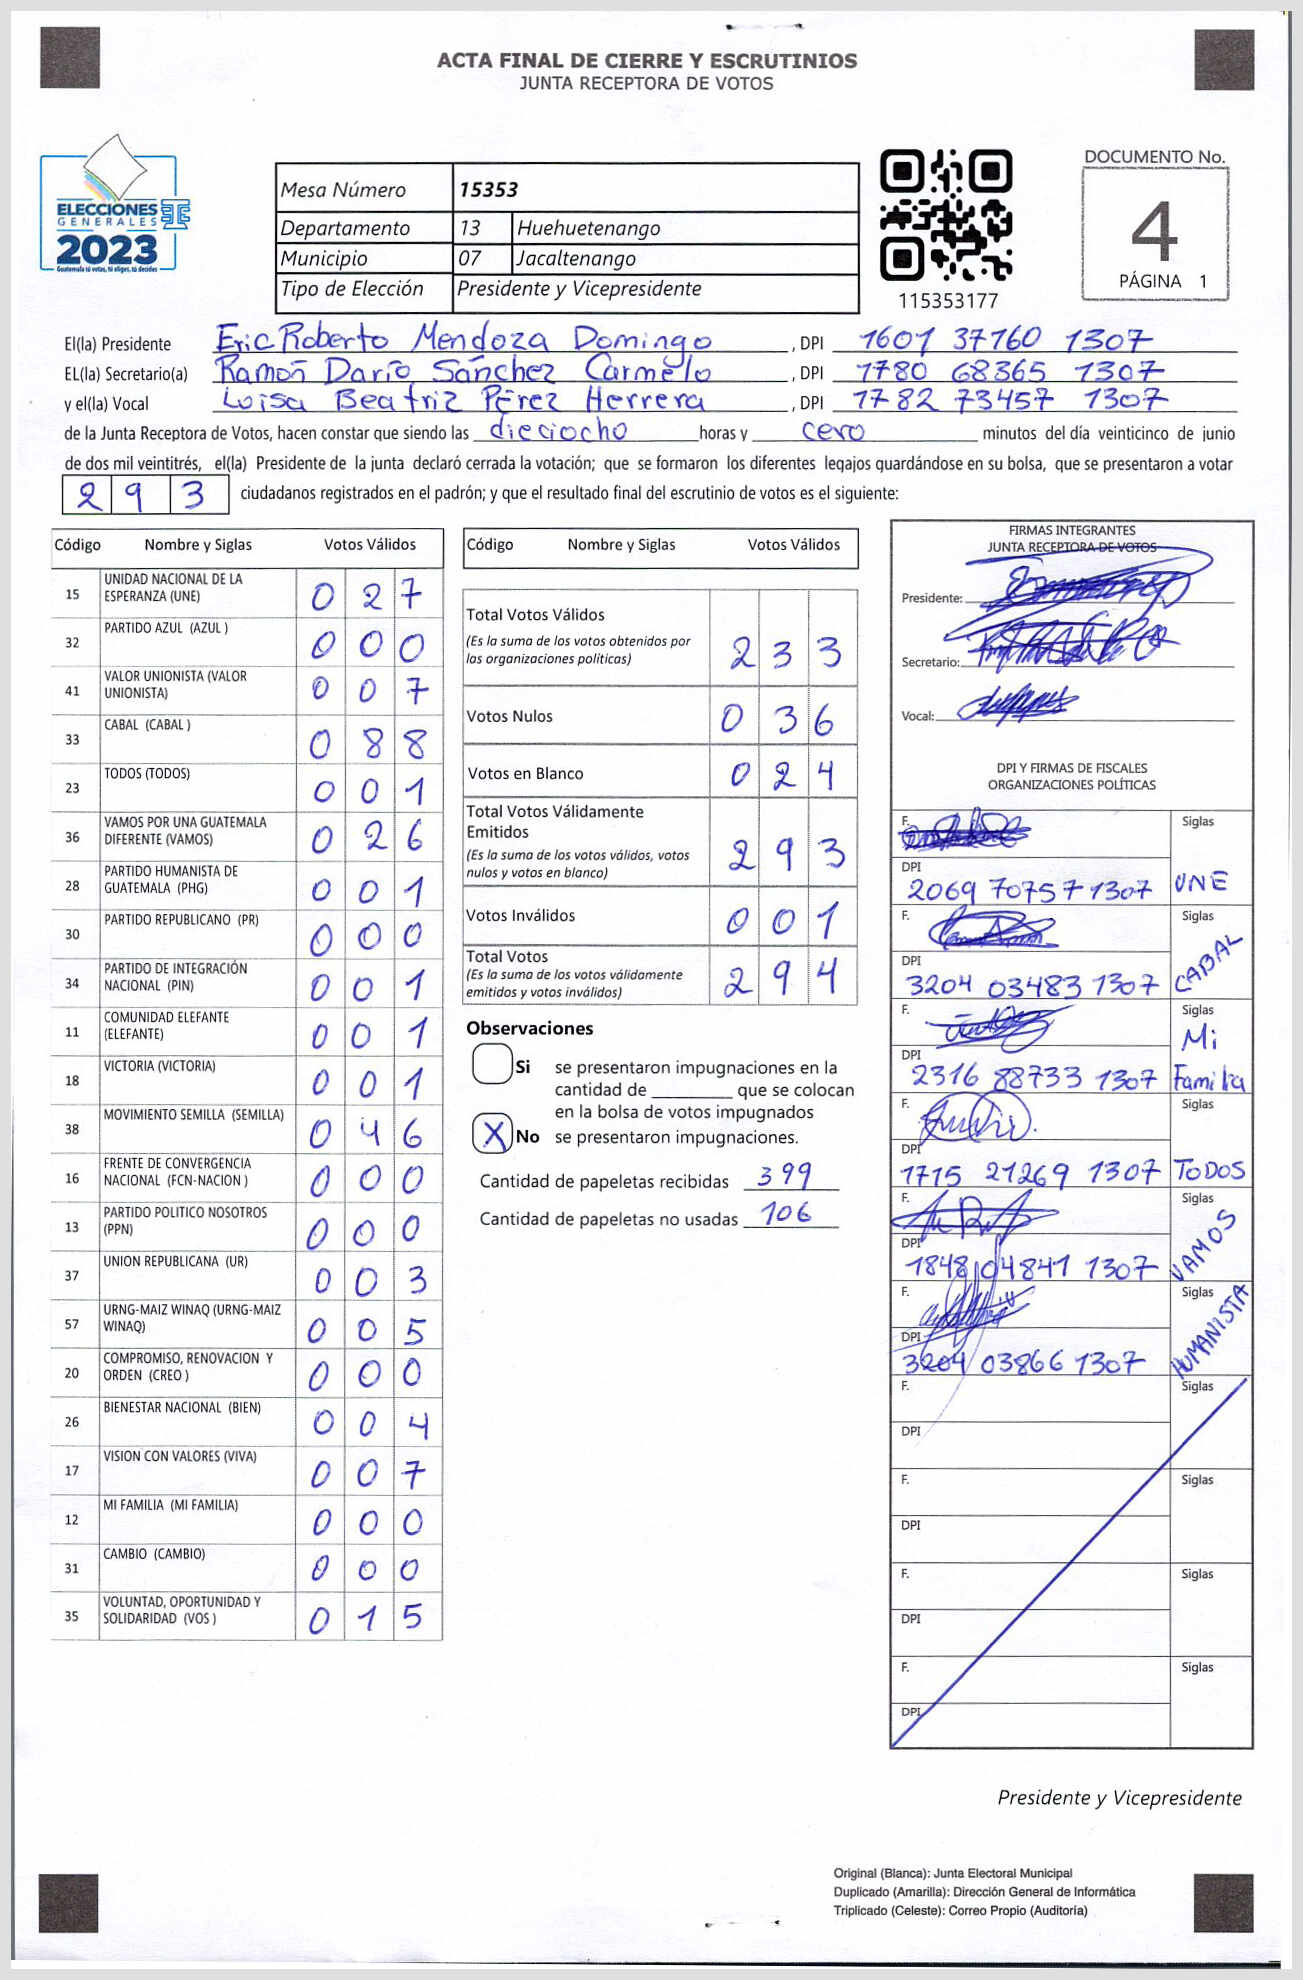 ACTA FINAL DE CIERRE Y ESCRUTINIOS
JUNTA RECEPTORA DE VOTOS
ELECCIONES
GENERALES
2023
Guatemala tú votas, tú eliges, tú decides
Mesa Número 15353
Departamento 13 Huehuetenango
Municipio 07 Jacaltenango
Tipo de Elección Presidente y Vicepresidente
115353177
DOCUMENTO No.
4
PÁGINA 1
El(la) Presidente Eric Roberto Mendoza Domingo, DPI 1601 37160 1307
EL(la) Secretario(a) Ramón Darío Sánchez Carmelo, DPI 1780 68365 1307
y el(la) Vocal Luisa Beatriz Pérez Herrera, DPI 1782 73457 1307
de la Junta Receptora de Votos, hacen constar que siendo las dieciocho horas y cero minutos del día veinticinco de junio
de dos mil veintitrés, el(la) Presidente de la junta declaró cerrada la votación; que se formaron los diferentes legajos guardándose en su bolsa, que se presentaron a votar
293 ciudadanos registrados en el padrón; y que el resultado final del escrutinio de votos es el siguiente:
Código Nombre y Siglas Votos Válidos
15 UNIDAD NACIONAL DE LA ESPERANZA (UNE) 027
32 PARTIDO AZUL (AZUL ) 000
41 VALOR UNIONISTA (VALOR UNIONISTA) 007
33 CABAL (CABAL ) 088
23 TODOS (TODOS) 001
36 VAMOS POR UNA GUATEMALA DIFERENTE (VAMOS) 026
28 PARTIDO HUMANISTA DE GUATEMALA (PHG) 001
30 PARTIDO REPUBLICANO (PR) 000
34 PARTIDO DE INTEGRACIÓN NACIONAL (PIN) 001
11 COMUNIDAD ELEFANTE (ELEFANTE) 001
18 VICTORIA (VICTORIA) 001
38 MOVIMIENTO SEMILLA (SEMILLA) 046
16 FRENTE DE CONVERGENCIA NACIONAL (FCN-NACION ) 000
13 PARTIDO POLITICO NOSOTROS (PPN) 000
37 UNION REPUBLICANA (UR) 003
57 URNG-MAIZ WINAQ (URNG-MAIZ WINAQ) 005
20 COMPROMISO, RENOVACION Y ORDEN (CREO ) 000
26 BIENESTAR NACIONAL (BIEN) 004
17 VISION CON VALORES (VIVA) 007
12 MI FAMILIA (MI FAMILIA) 000
31 CAMBIO (CAMBIO) 000
35 VOLUNTAD, OPORTUNIDAD Y SOLIDARIDAD (VOS ) 015
Código Nombre y Siglas Votos Válidos
Total Votos Válidos 233
(Es la suma de los votos obtenidos por
las organizaciones políticas)
Votos Nulos 036
Votos en Blanco 024
Total Votos Válidamente
Emitidos 293
(Es la suma de los votos válidos, votos
nulos y votos en blanco)
Votos Inválidos 001
Total Votos 294
(Es la suma de los votos válidamente
emitidos y votos inválidos)
Observaciones
Si se presentaron impugnaciones en la
cantidad de ________ que se colocan
en la bolsa de votos impugnados
X No se presentaron impugnaciones.
Cantidad de papeletas recibidas 399
Cantidad de papeletas no usadas 106
FIRMAS INTEGRANTES
JUNTA RECEPTORA DE VOTOS
Presidente:
Secretario:
Vocal:
DPI Y FIRMAS DE FISCALES
ORGANIZACIONES POLÍTICAS
F. Siglas
DPI
2069 70757 1307 UNE
F. Siglas
DPI
3204 03483 1307 CABAL
F. Siglas
DPI
2316 88733 1307 Mi Familia
F. Siglas
DPI
1715 21269 1307 TODOS
F. Siglas
DPI
1848 04841 1307 VAMOS
F. Siglas
DPI
3204 03866 1307 HUMANISTA
F. Siglas
DPI
F. Siglas
DPI
F. Siglas
DPI
F. Siglas
DPI
Presidente y Vicepresidente
Original (Blanca): Junta Electoral Municipal
Duplicado (Amarilla): Dirección General de Informática
Triplicado (Celeste): Correo Propio (Auditoría)